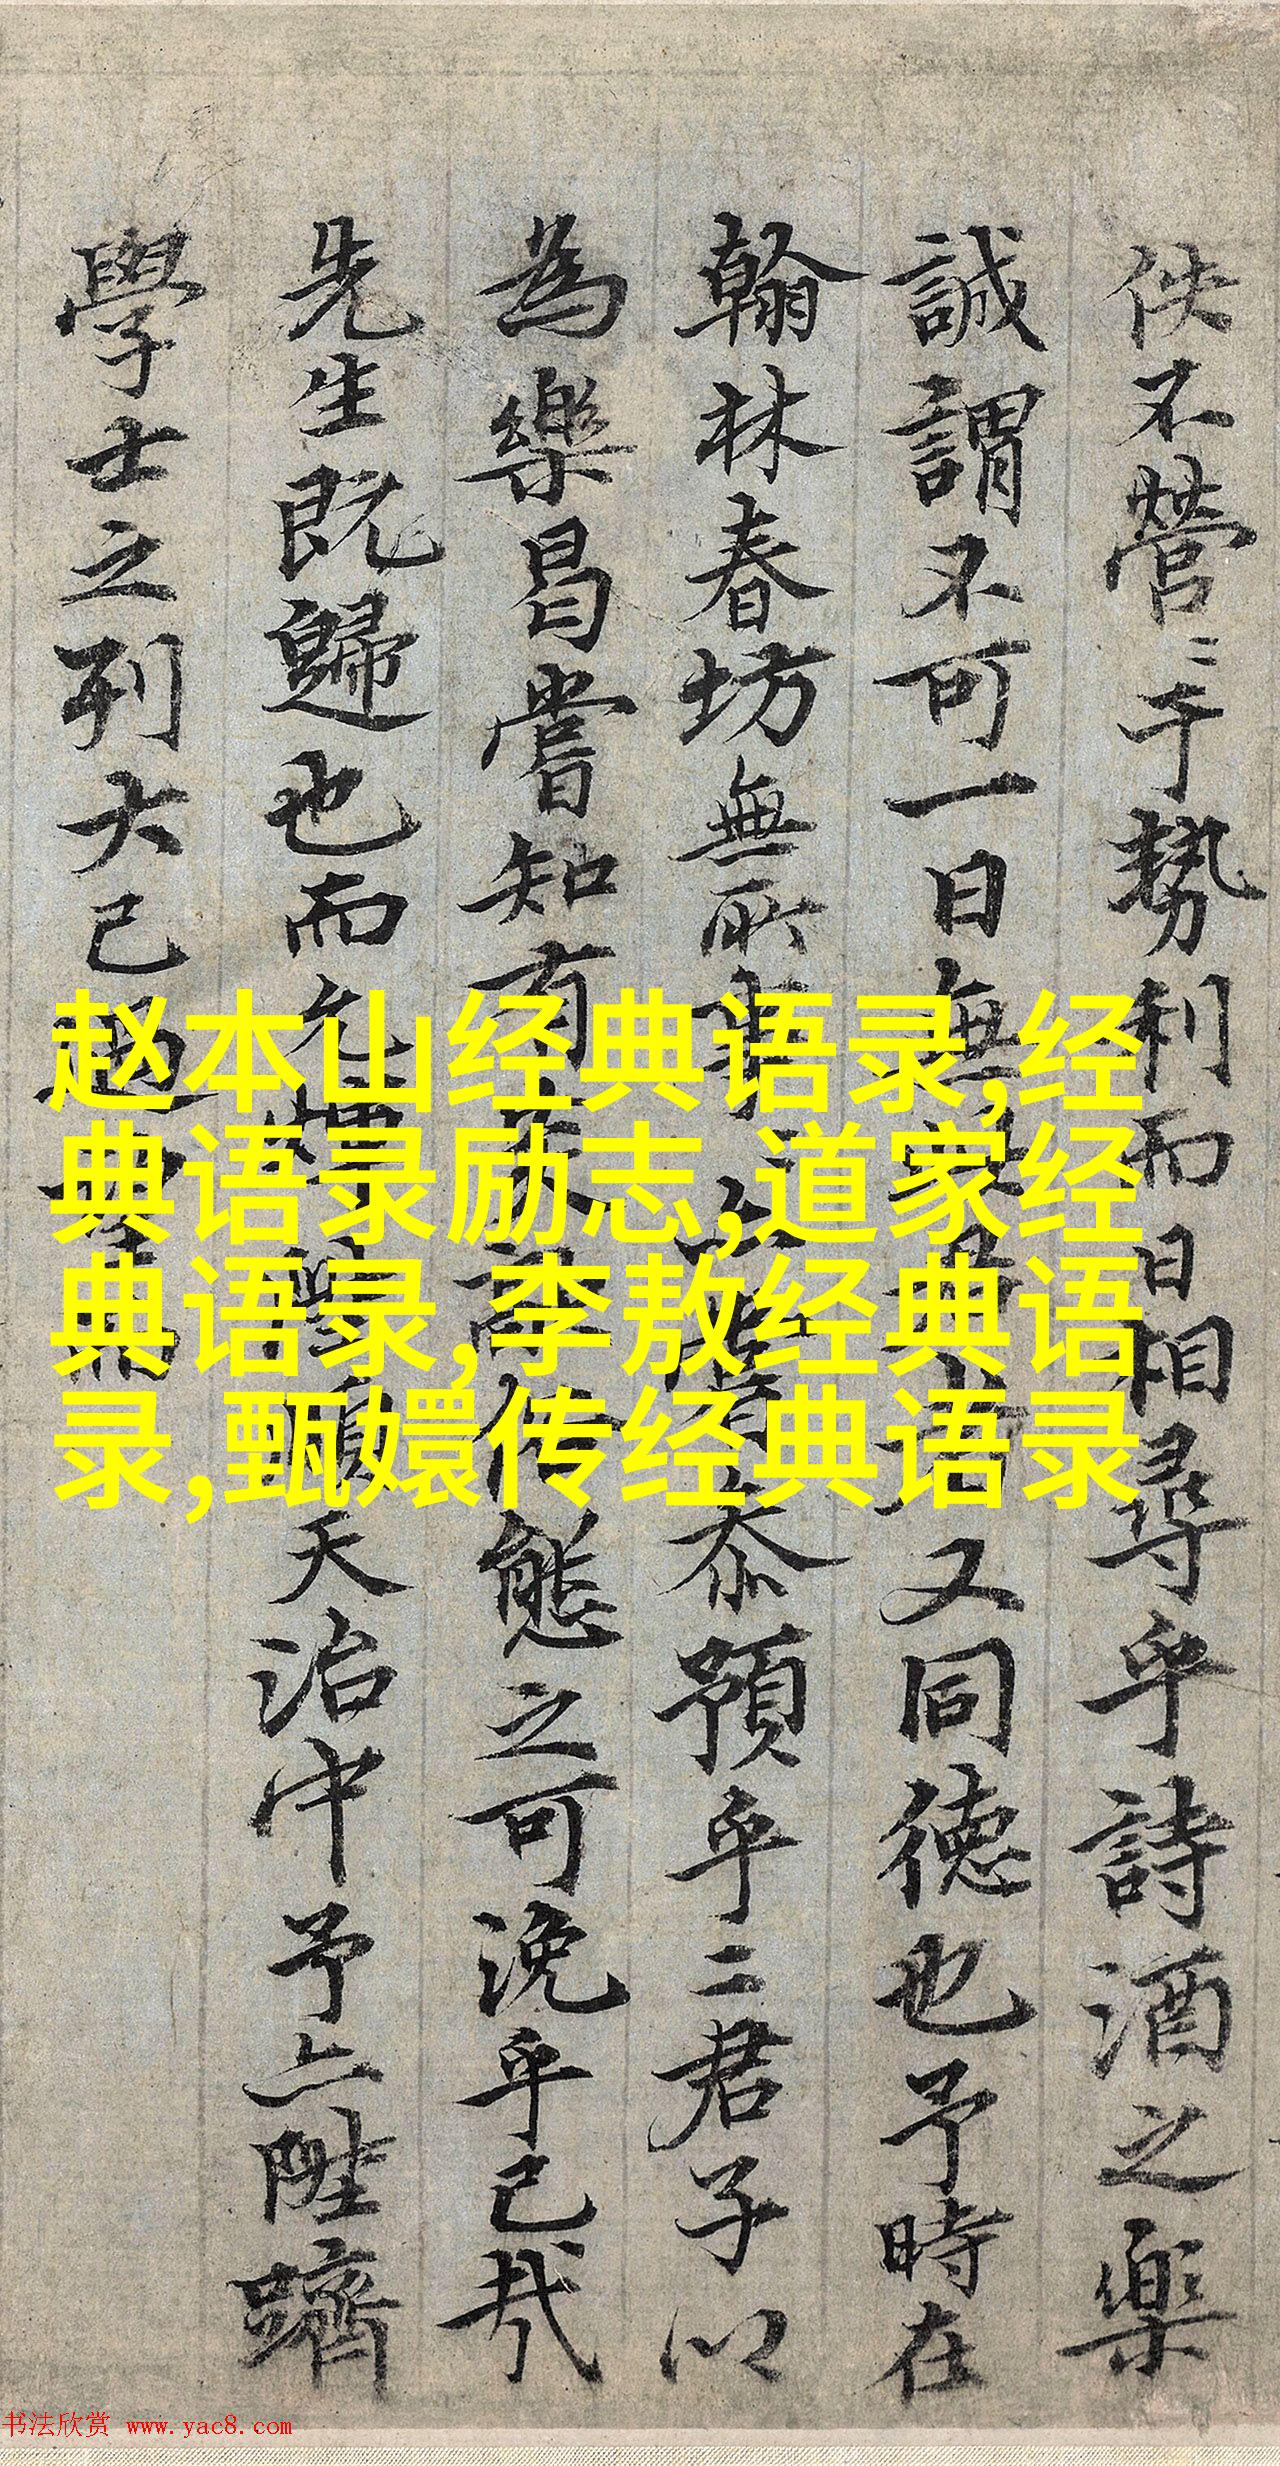 佚不營〻於勢利而日相尋乎詩酒之樂
誠謂不可一日無又同德也予時在
翰林春坊無所事〻泰預乎二君子以
為樂曷嘗知有態之可浼乎己哉
先生既歸也而天治中予亦陞躋
學士之列大己過
赵本山经典语录,经
典语录励志,道家经
典语录,李敖经典语
录,甄嬛传经典语录
书法欣赏 www.yac8.com